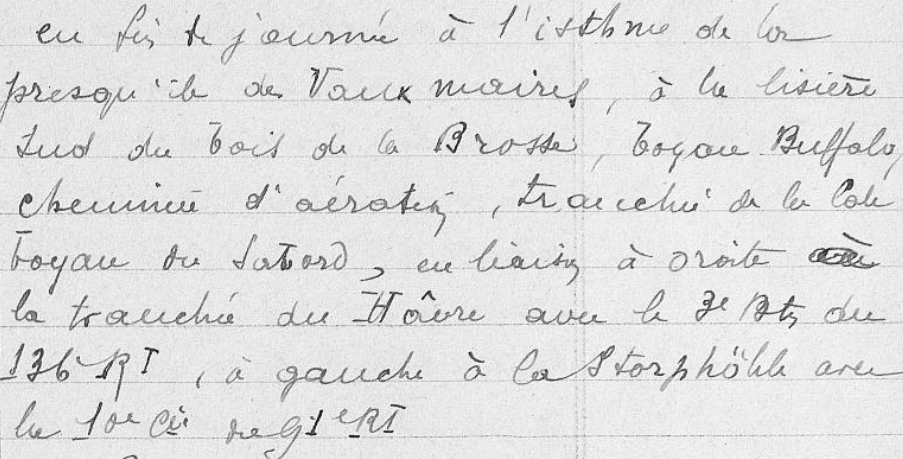 en fin de journée à l'isthme de la
presqu'ile des Vauxmaires, à la lisière
Sud du bois de la Brosse, boyau Buffalo,
cheminée d'aération, tranchée de la Cote
boyau du Sabord, en liaison à droite à
la tranchée du Hâvre avec le 3e Btn du
136e RI, à gauche à la Storphöhle avec
la 10e Cie du 91e RI